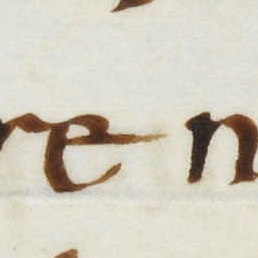 re n